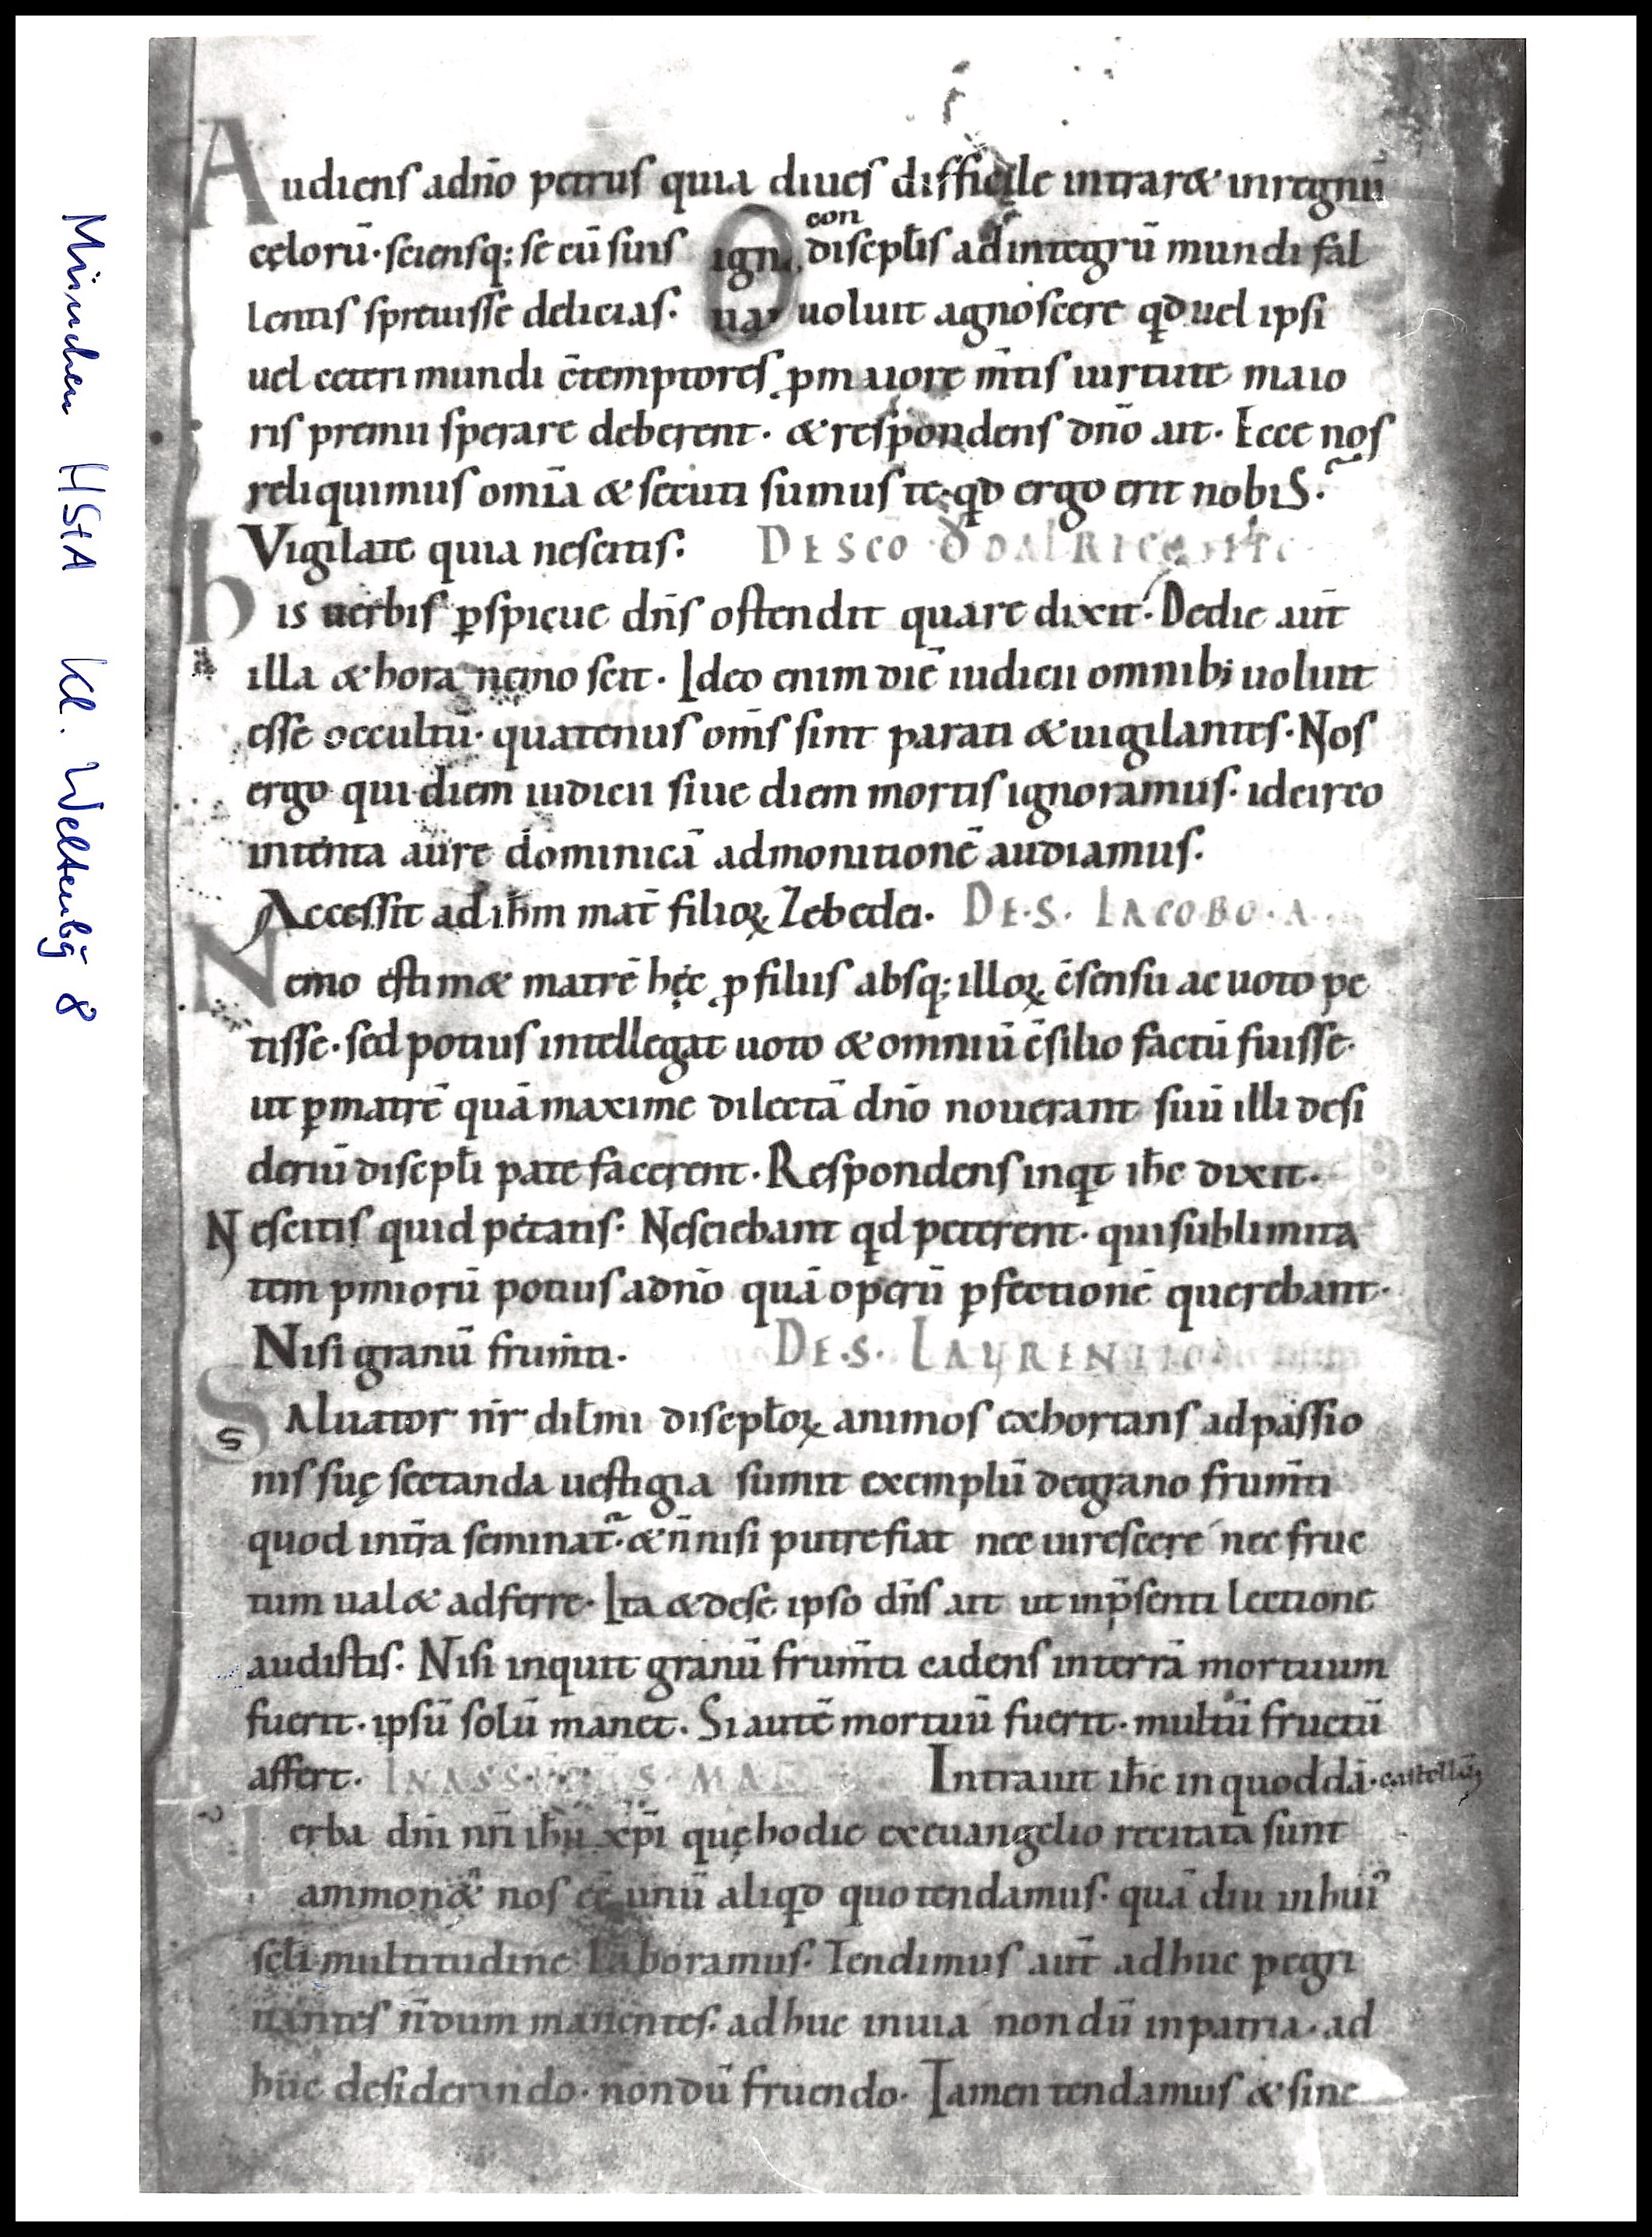 Audienſ adnō petruſ quia diueſ difficile intrar& inregnū
cęlorū · ſcienſq; ſe cū ſuis ign con diſcipl̄is ad integrū mundi fal
lentiſ ſpreuiſſe deliciaſ · ua uoluit agnoſcere qd uel ipſi
uel ceteri mundi c̄temptoreſ, p̱ maiore m̄tis uirtute maio
ris premii ſperare deberent · & reſpondenſ dnō ait · Ecce noſ
reliquimuſ omīa & ſecuti ſumuſ te · qd ergo erit nobiS ·
Vigilate quia neſcitis : DE SCO ODALRICO
his uerbiſ p̱ſpicue dn̄ſ oſtendit quare dixit · Dedie aut̄
illa & hora nemo ſcit · Ideo enim diē iudicii omnib; uoluit
eſſe occultū · quatenuſ om̄ſ ſint parati & uigilanteſ · Noſ
ergo qui diem iudicii ſiue diem mortiſ ignoramuſ · idcirco
intenta aure dominicā admonitionē audiamuſ ·
Acceſſit ad ih̄m mat̄ filioꝝ Zebedei · DE · S · IACOBO · A
Nemo eſtim& matrē hęc ꝓ filiis abſq; illoꝝ c̄ſenſu ac uoto pe
tiſſe · ſed potiuſ intellegat uoto & omniū c̄ſilio factū fuiſſe ·
ut p̱ matrē quā maxime dilectā dnō nouerant ſuū illi deſi
deriū diſcipl̄i patefacerent · Reſpondenſ inqt ih̄c dixit ·
Neſcitiſ quid petatiſ : Neſciebant qd peterent · qui ſublimita
tem p̄miorū potiuſ adnō quā operū p̱fectionē querebant ·
Niſi granū frum̄ti · DE · S · LAURENTIO
Saluator nr̄ dil̄mi diſcipl̄oꝝ animoſ exhortanſ ad paſſio
niſ ſuę ſectanda ueſtigia ſumit exemplū degrano frum̄ti
quod int̄ra ſeminat̄ · & n̄ niſi putrefiat nec uireſcere nec fruc
tum ual& adferre · Ita & deſe ipſo dn̄ſ ait ut inp̄ſenti lectione
audiſtis · Niſi inquit granū frum̄ti cadenſ interrā mortuum
fuerit · ipſū ſolū manet · Si autē mortuū fuerit · multū fructū
affert · IN ASS S · MAR Intrauit ih̄c in quoddā · caſtellū
Uerba dn̄i nr̄i ih̄u xp̄i quę hodie exeuangelio recitata ſunt
ammon& noſ eē unū aliqd quo tendamuſ · quā diu in hui᾽
ſcl̄i multitudine laboramuſ · Tendimuſ aut̄ adhuc p̱egri
nanteſ n̄dum manenteſ · adhuc inuia nondū inpatria · ad
huc deſiderando · nondū fruendo · Tamen tendamuſ & ſine
München HStA Kl. Weltenbg 8